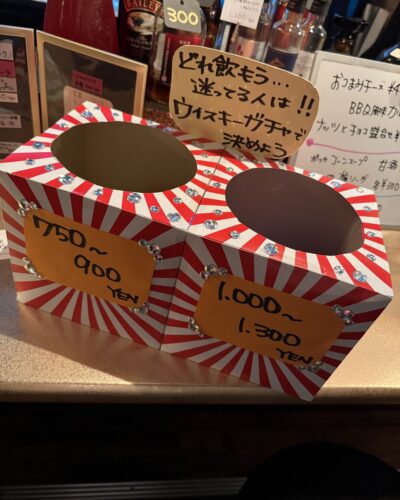 BAILEYS
300
どれ飲もう…
迷ってる人は!!
ウイスキーガチャで
決めよう
750〜
900
YEN
1.000〜
1.300
YEN
おつまみチーズ
BBQ風味
ナッツとチョコ盛合せ